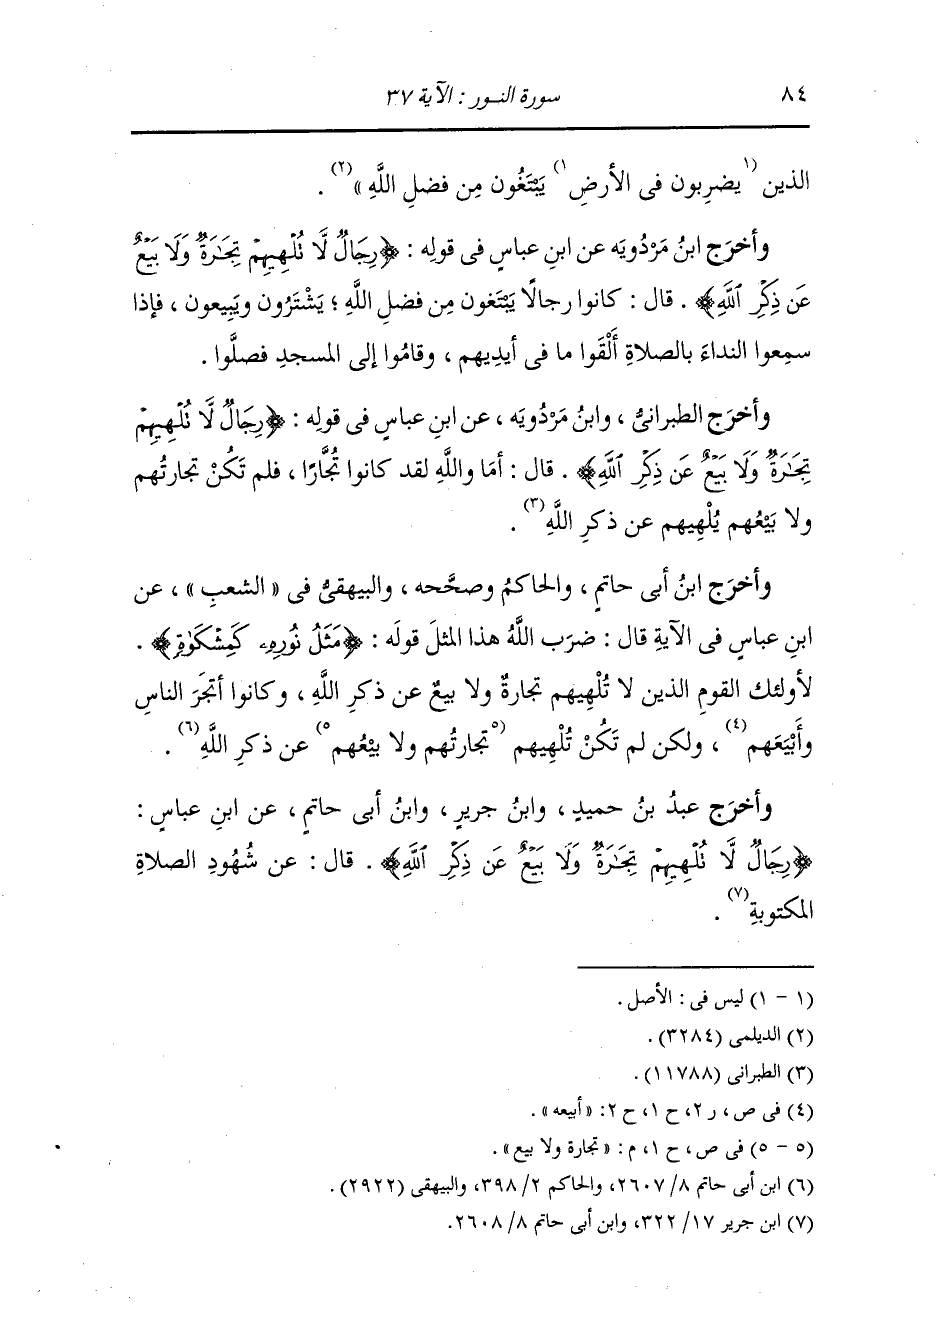 ٨٤ سورة النور : الآية ٣٧
الذين (١) يضرِبون فى الأرضِ (١) يَبْتَغُون مِن فضلِ اللَّهِ » (٢) .
وأخرَج ابنُ مَرْدُويَه عن ابنِ عباسٍ فى قولِه : ﴿رِجَالٌ لَّا تُلْهِيهِمْ تِجَٰرَةٌ وَلَا بَيْعٌ
عَن ذِكْرِ ٱللَّهِ﴾ . قال : كانوا رجالًا يَبْتَغون مِن فضلِ اللَّهِ ؛ يَشْتَرُون ويَبِيعون ، فإذا
سمِعوا النداءَ بالصلاةِ أَلْقَوا ما فى أيدِيهم ، وقامُوا إلى المسجدِ فصلَّوا .
وأخرَج الطبرانىُّ ، وابنُ مَرْدُويَه ، عن ابنِ عباسٍ فى قولِه : ﴿رِجَالٌ لَّا تُلْهِيهِمْ
تِجَٰرَةٌ وَلَا بَيْعٌ عَن ذِكْرِ ٱللَّهِ﴾ . قال : أمَا واللَّهِ لقد كانوا تُجَّارًا ، فلم تَكُنْ تجارتُهم
ولا بَيْعُهم يُلْهِيهم عن ذكرِ اللَّهِ (٣) .
وأخرَج ابنُ أبى حاتمٍ ، والحاكمُ وصحَّحه ، والبيهقىُّ فى « الشعبِ » ، عن
ابنِ عباسٍ فى الآيةِ قال : ضرَب اللَّهُ هذا المثلَ قولَه : ﴿مَثَلُ نُورِهِۦ كَمِشْكَوٰةٍ﴾ .
لأولئك القومِ الذين لا تُلْهِيهم تجارةٌ ولا بيعٌ عن ذكرِ اللَّهِ ، وكانوا أتجَرَ الناسِ
وأَبْيَعَهم (٤) ، ولكن لم تَكُنْ تُلْهِيهم (٥) تجارتُهم ولا بيْعُهم (٥) عن ذكرِ اللَّهِ (٦) .
وأخرَج عبدُ بنُ حميدٍ ، وابنُ جريرٍ ، وابنُ أبى حاتمٍ ، عن ابنِ عباسٍ :
﴿رِجَالٌ لَّا تُلْهِيهِمْ تِجَٰرَةٌ وَلَا بَيْعٌ عَن ذِكْرِ ٱللَّهِ﴾ . قال : عن شُهُودِ الصلاةِ
المكتوبةِ (٧) .
(١ - ١) ليس فى : الأصل .
(٢) الديلمى (٣٢٨٤) .
(٣) الطبرانى (١١٧٨٨) .
(٤) فى ص ، ر ٢، ح ١، ح ٢: « أبيعه » .
(٥ - ٥) فى ص ، ح ١، م : « تجارة ولا بيع » .
(٦) ابن أبى حاتم ٨/ ٢٦٠٧، والحاكم ٢/ ٣٩٨، والبيهقى (٢٩٢٢) .
(٧) ابن جرير ١٧/ ٣٢٢، وابن أبى حاتم ٨/ ٢٦٠٨.